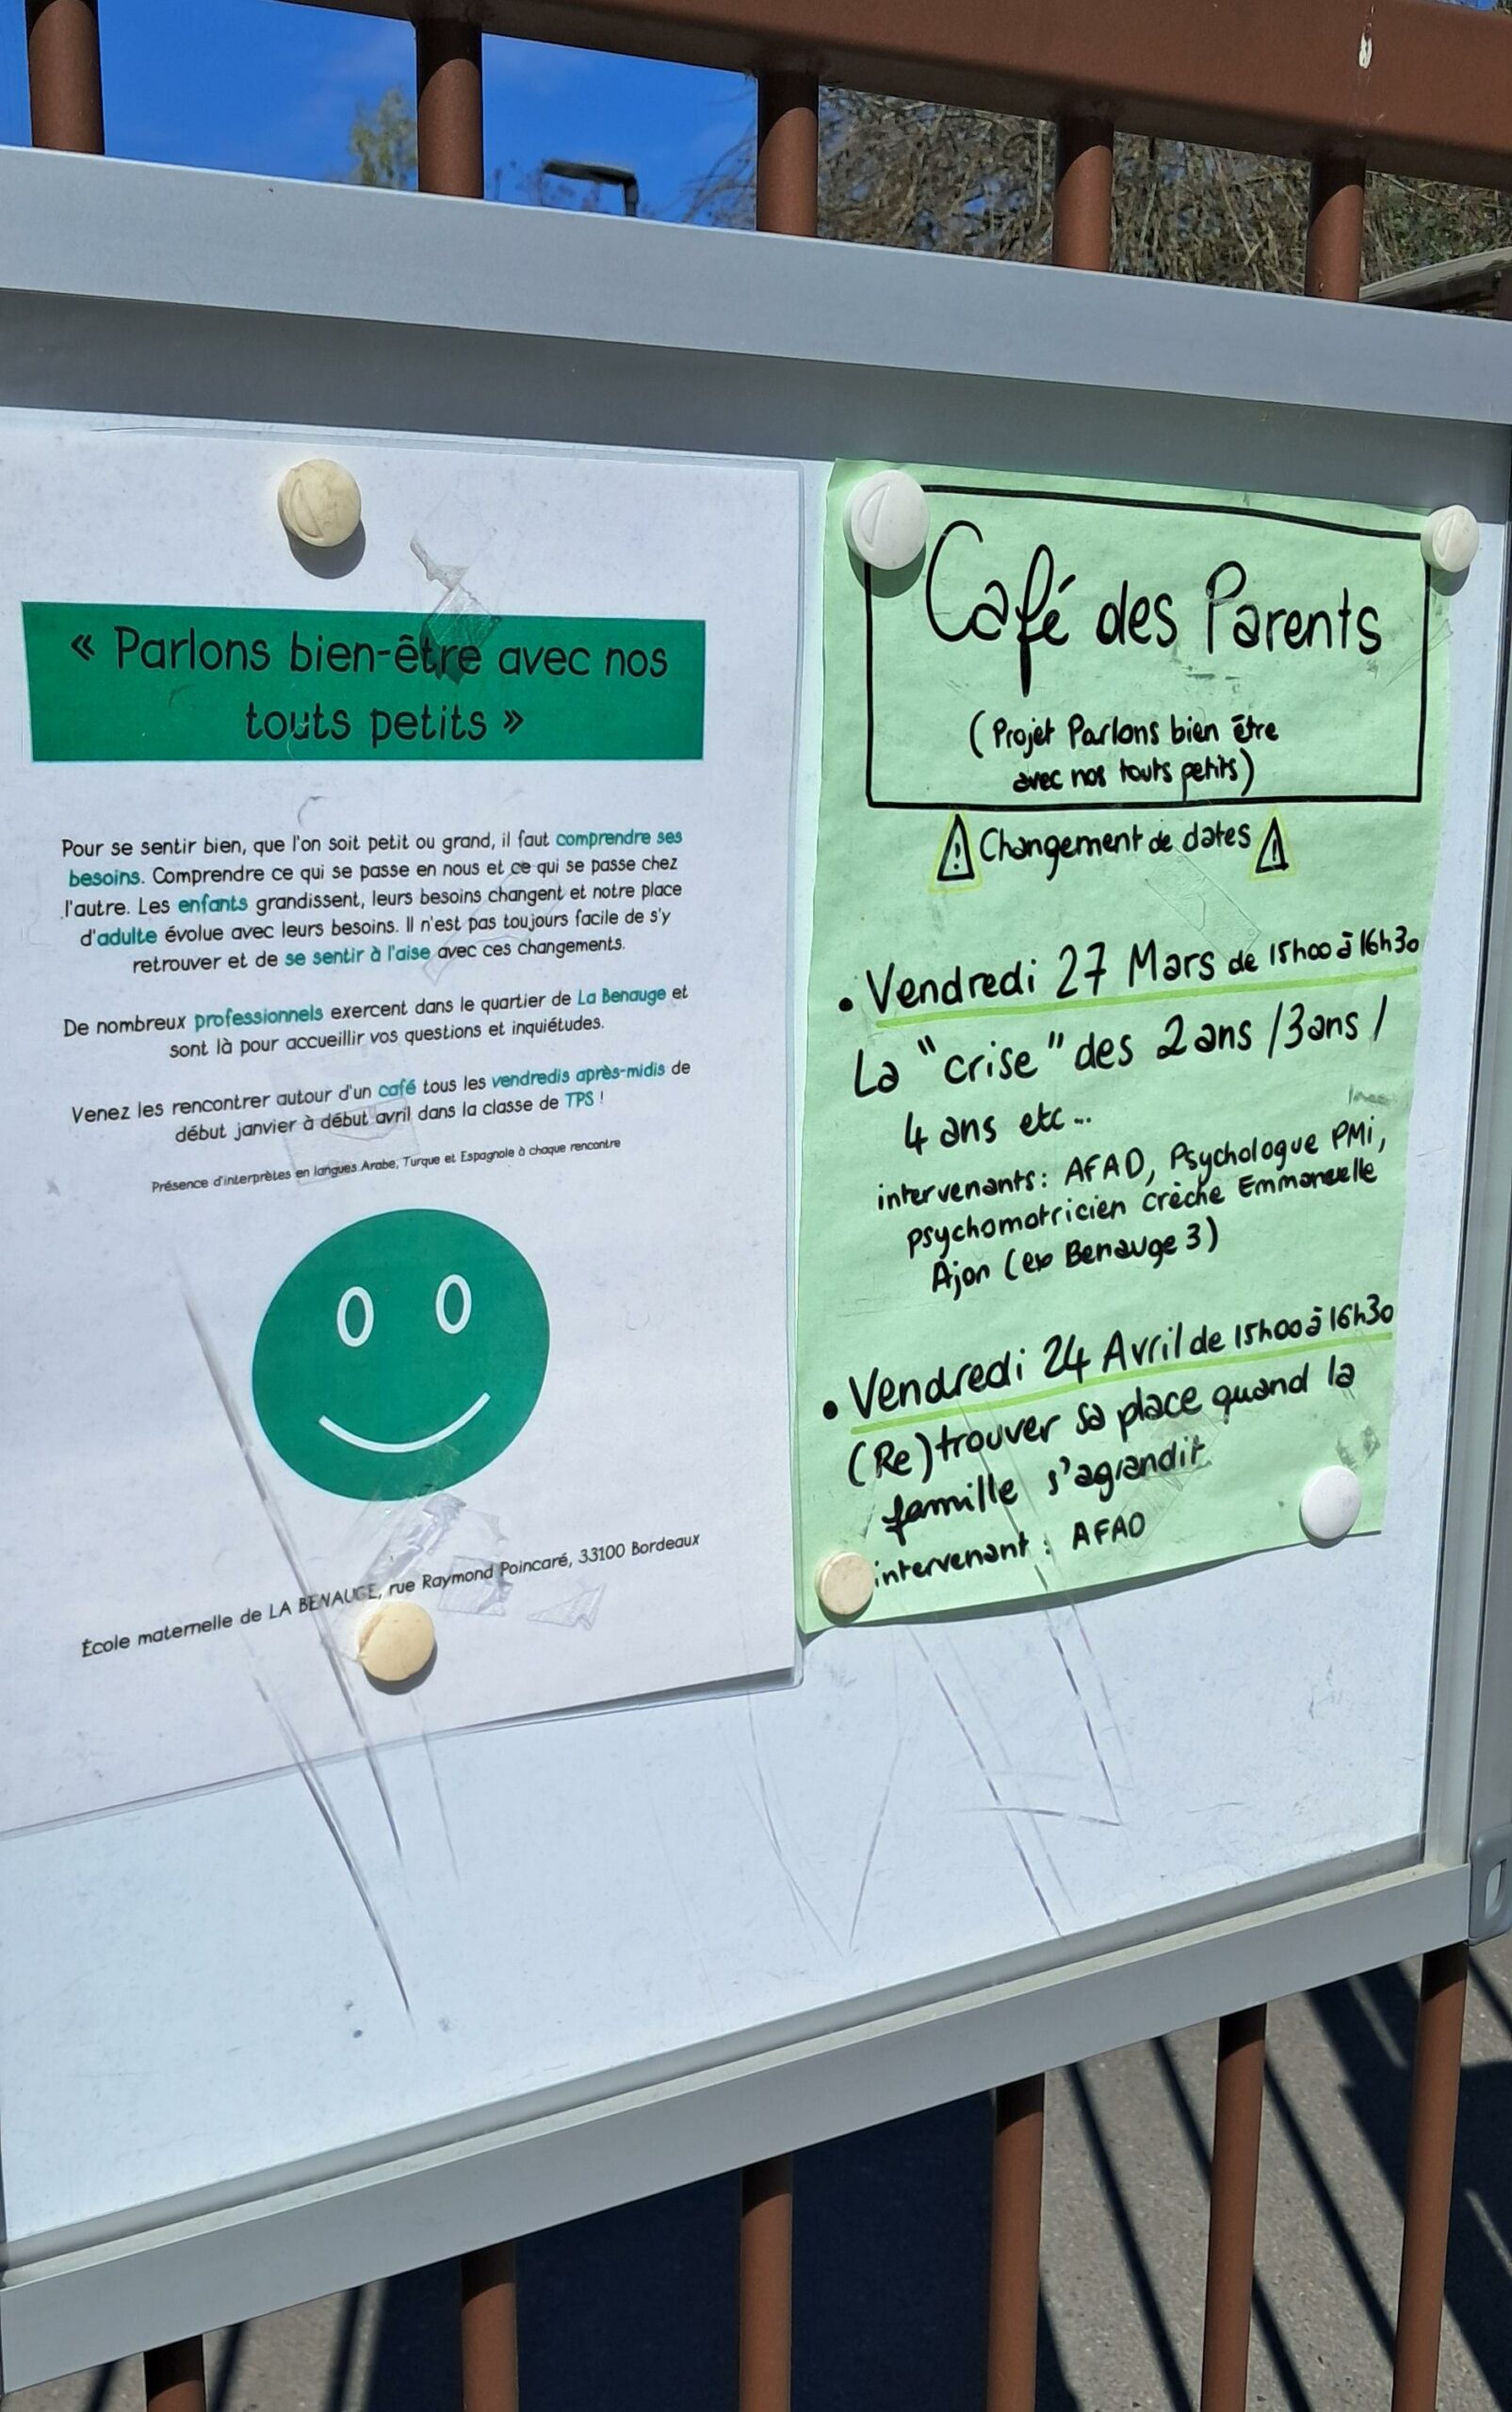 « Parlons bien-être avec nos
touts petits »
Pour se sentir bien, que l'on soit petit ou grand, il faut comprendre ses
besoins. Comprendre ce qui se passe en nous et ce qui se passe chez
l'autre. Les enfants grandissent, leurs besoins changent et notre place
d'adulte évolue avec leurs besoins. Il n'est pas toujours facile de s'y
retrouver et de se sentir à l'aise avec ces changements.
De nombreux professionnels exercent dans le quartier de La Benauge et
sont là pour accueillir vos questions et inquiétudes.
Venez les rencontrer autour d'un café tous les vendredis après-midis de
début janvier à début avril dans la classe de TPS !
Présence d'interprètes en langues Arabe, Turque et Espagnole à chaque rencontre
École maternelle de LA BENAUGE, rue Raymond Poincaré, 33100 Bordeaux
Café des Parents
(Projet Parlons bien être
avec nos touts petits)
Changement de dates
• Vendredi 27 Mars de 15h00 à 16h30
La "crise" des 2 ans /3ans /
4 ans etc...
intervenants: AFAD, Psychologue PMi,
psychomotricien crèche Emmanuelle
Ajon (ex Benauge 3)
• Vendredi 24 Avril de 15h00 à 16h30
(Re)trouver sa place quand la
famille s'agrandit
intervenant : AFAD